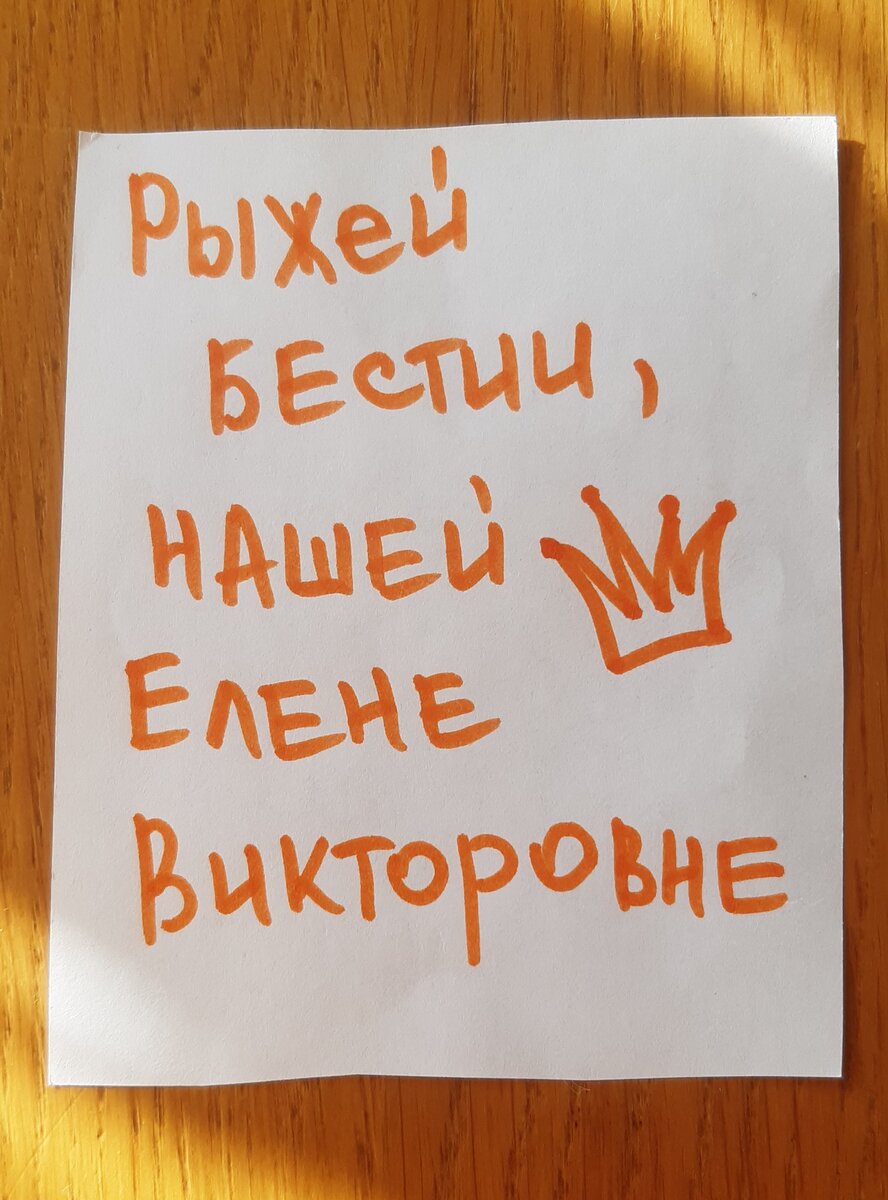 Рыжей
БЕСТИИ,
НАШЕЙ
ЕЛЕНЕ
ВИКТОРОВНЕ